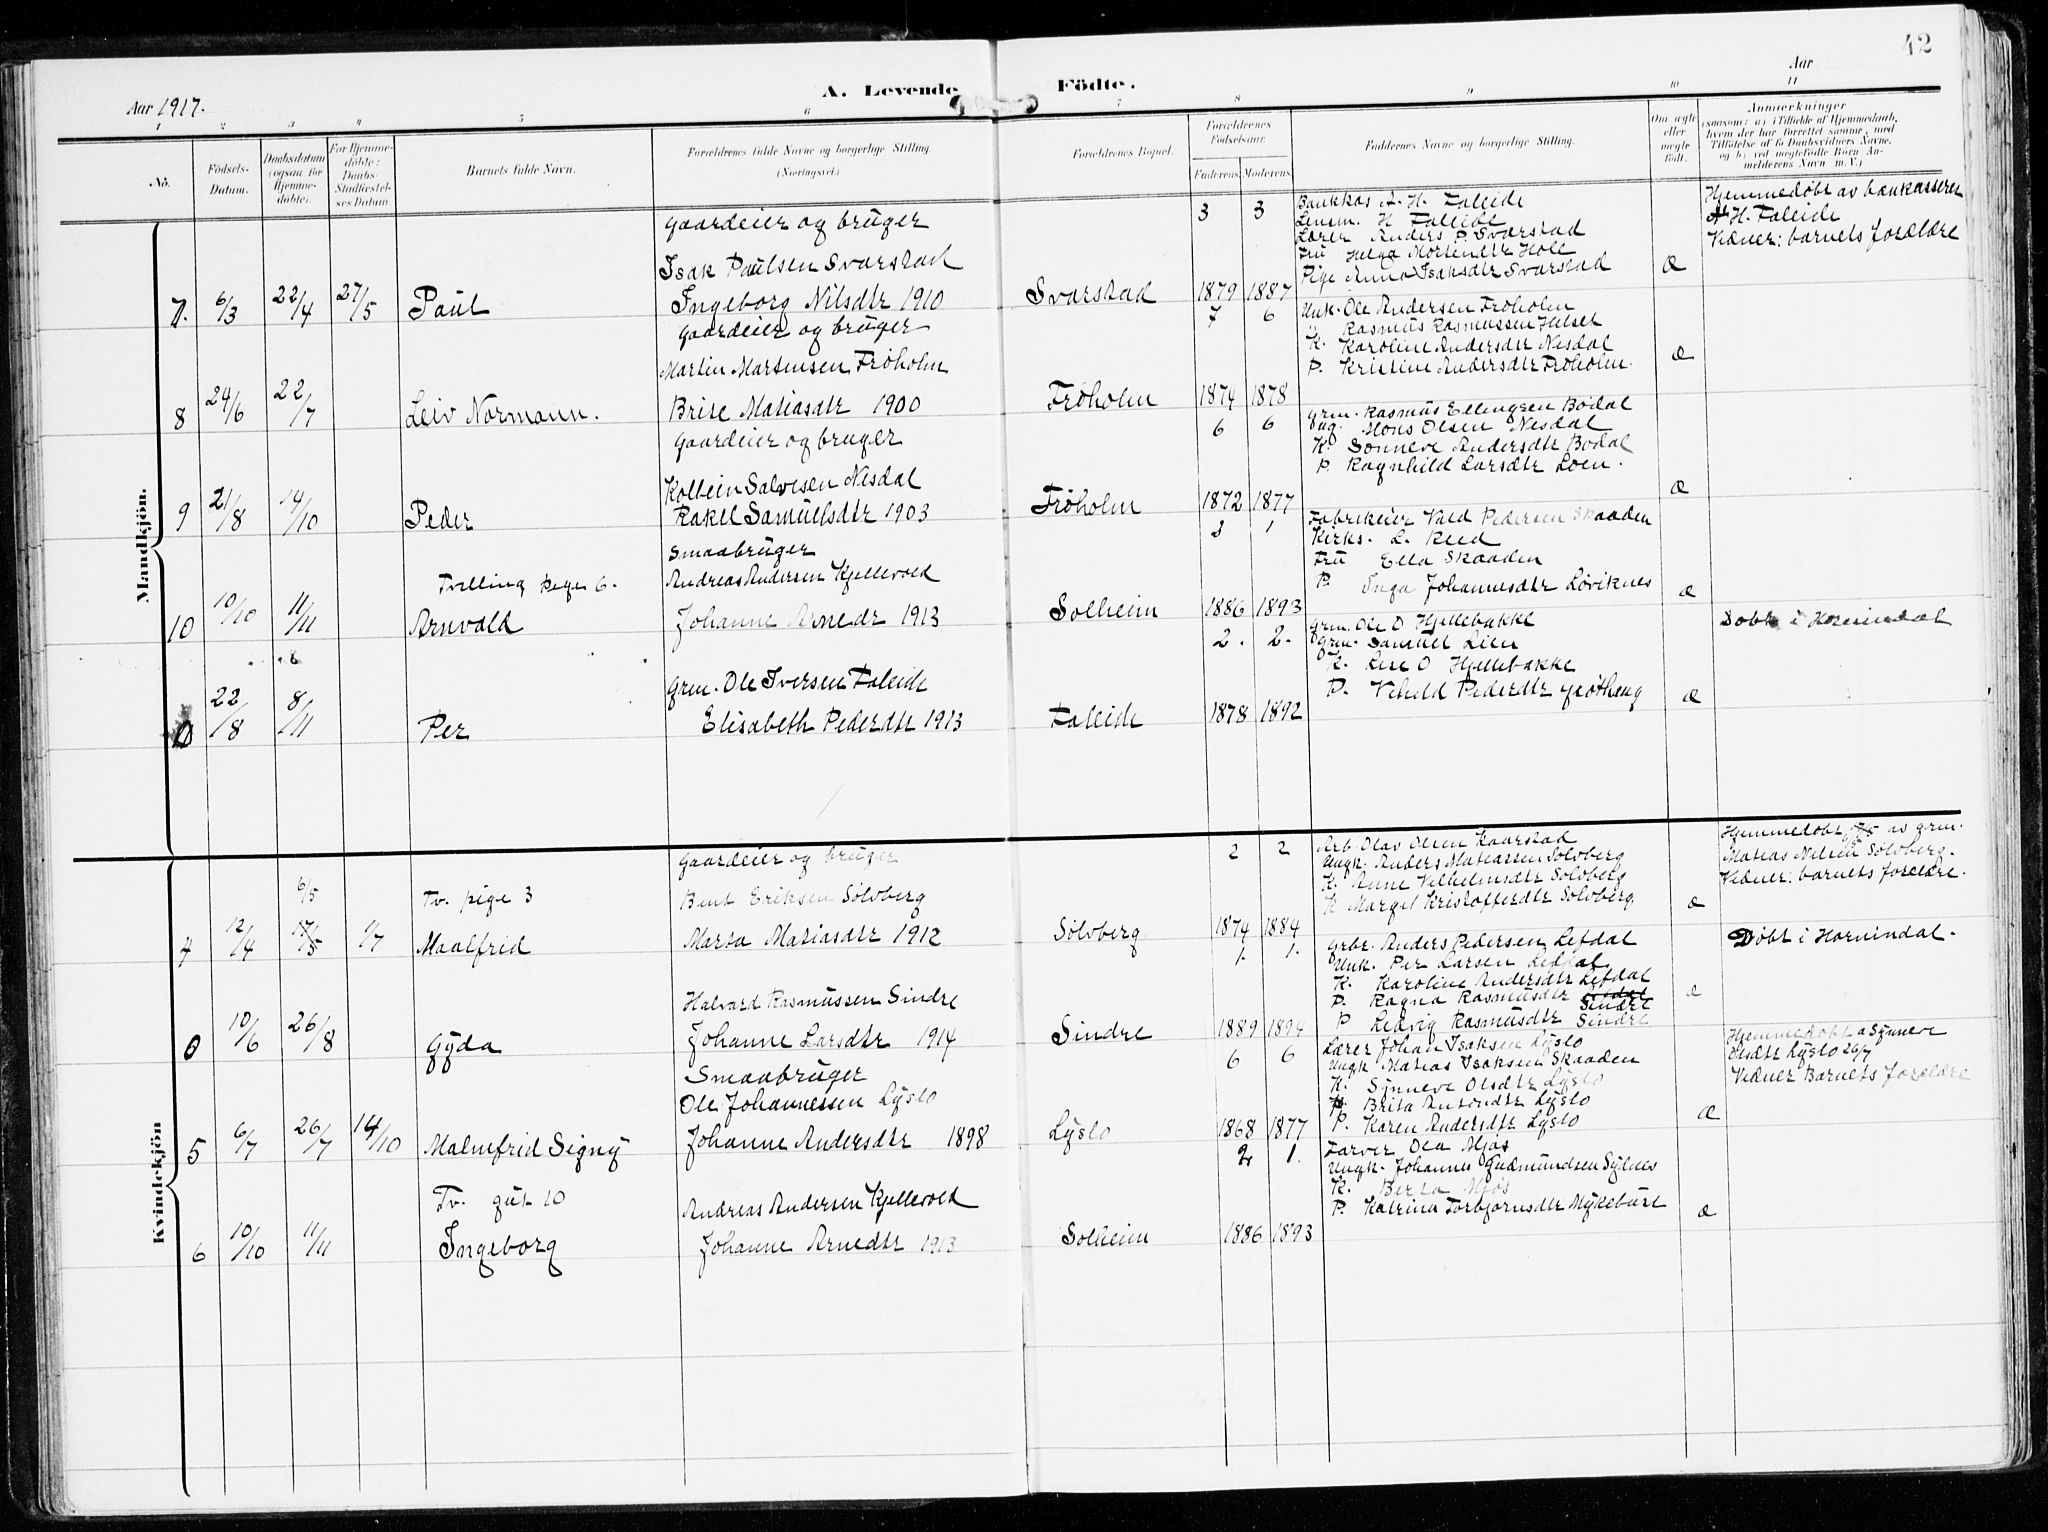 42
A. Levende Födte.
Aar 1917.
Aar
1 2 3 4 5 6 7 8 9 10 11
No.
Födsels-Datum.
Daabsdatum (ogsaa for Hjemme-döbte).
For Hjemme-döbte: Daabs-Stadfæstelses Datum
Barnets fulde Navn.
Forældrenes fulde Navne og borgerlige Stilling. (Næringsvei.)
Forældrenes Bopæl.
Forældrenes Födselsaar.
Faderens Moderens
Faddernes Navne og borgerlige Stilling.
Om ægte eller uægte födt.
Anmærkninger
(saasom: a) i Tilfælde af Hjemmedaab, hvem der har forrettet samme, med Tilföielse af to Daabsvidners Navne, og b) ved uægtefödte Börn Anmelderens Navn m. V.)
Mandkjön.
Gaardeier og bruger
Isak Paulsen Svarstad
7. 6/3 22/4 27/5 Paul Ingeborg Nilsdtr 1910 Svarstad 1879 1887 Æ
3 3
Bankkas A. H. Faleide
Lensm. H Faleide
Lærer Anders P. Svarstad
Fru Helga Mortensdtr Hole
Pige Anna Isaksdtr Svarstad
Hjemmedøbt av bankkasserer
A H. Faleide
Vidner: barnets forældre
Gaardeier og bruger
Martin Martensen Frøholm
8 24/6 22/7 Leiv Normann. Brite Matiasdtr 1900 Frøholm 1874 1878 Æ
7 6
Unk. Ole Andersen Frøholm
" Rasmus Rasmussen Hilset
K. Karoline Andersdtr Nesdal
P. Kristine Andersdtr Frøholm.
Gaardeier og bruger
Kolbein Salvesen Nesdal
9 21/8 14/10 Peder Rakel Samuelsdtr 1903 Frøholm 1872 1877 Æ
6 6
Grm. Rasmus Ellingsen Bødal
Ug. Mons Olsen Nesdal
K. Sønneve Andersdtr Bødal
P. Ragnhild Larsdtr Loen.
Smaabruger
Tvilling pige 6. Andreas Andersen Kjellevold
10 10/10 11/11 Arnvald Johanne Arnedtr 1913 Solheim 1886 1893 Æ
1
Fabrikeier Vald Pedersen Skaaden
Kirks. L. Reed
Fru Ella Skaaden
P. Inga Johannesdtr Løviknes
Grm. Ole Iversen Faleide
0 22/8 8/11 Per Elisabeth Pedersdtr 1913 Faleide 1878 1892 Æ
2. 2.
Grm. Ole O Hjellebakke
Grm. Samuel Lien
K. Lise O Hjellebakke
P. Pedersdtr
Døbt i Hornindal
Kvindekjön
Gaardeier og bruger
6/5 Tv. pige 3 Bent Eriksen Sölvberg
4 12/4 17/5 1/7 Maalfrid Marta Matiasdtr 1912 Sölvberg 1874 1884 Æ
2 2
Arb. Olav Olsen Kaarstad
Ungk. Anders Matiassen Sölvberg
K. Anne Vilhelmsdtr Sölvberg
K Margit Kristoffersdtr Sölvberg
Hjemmedøbt 6/5 av grm.
Matias Nilsen Sølvberg.
Vidner: barnets forældre.
Halvard Rasmussen Sindre
0 10/6 26/8 Gyda Johanne Larsdtr 1914 Sindre 1889 1894 Æ
1. 1.
Grbr. Anders Pedersen Lefdal
Unk. Per Larsen Lefdal
K. Karoline Andersdtr Lefdal
P. Ragna Rasmusdtr Sindre
P Ledvig Rasmusdtr Sindre
Døbt i Hornindal.
Smaabruger
Ole Johannessen Lyslo
5 6/7 26/7 14/10 Malmfrid Signy Johanne Andersdtr 1898 Lyslo 1868 1877 Æ
6 6
Lærer Johan Isaksen Lyslo
Ungk Matias Isaksen Skaaden
K. Synneve Olsdtr Lyslo
Brita Antondtr Lyslo
P. Karen Andersdtr Lyslo
Hjemmedøbt a Synneve
Olsdtr Lyslo 26/7
Vidner Barnets forældre
Tv. gut 10 Andreas Andersen Kjellevold
6 10/10 11/11 Ingeborg Johanne Arnedtr 1913 Solheim 1886 1893 Æ
2 1.
Farver Ola Mjøs
Ungk. Johannes Gudmundsen Sylnes
K. Berta Mjøs
P. Katrina Torbjørnsdtr Myklebust